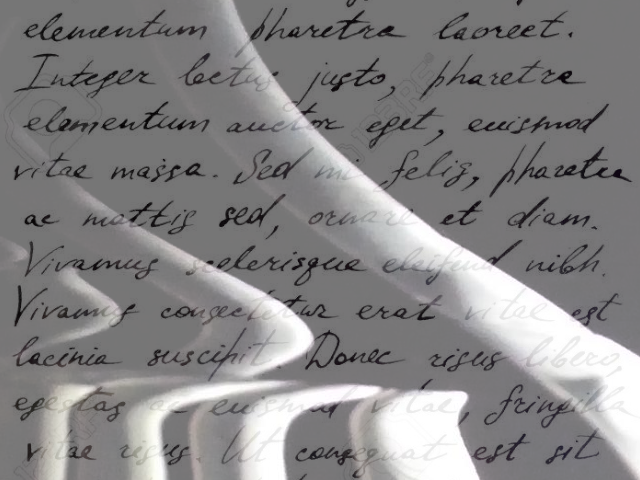 elementum pharetra laoreet.
Integer lectus justo, pharetra
elementum auctor eget, euismod
vitae massa. Sed mi felis, pharetra
ac mattis sed, ornare et diam.
Vivamus scelerisque eleifend nibh.
Vivamus consectetur erat vitae est
lacinia suscipit. Donec risus libero,
egestas ac euismod vitae, fringilla
vitae risus. Ut consequat est sit